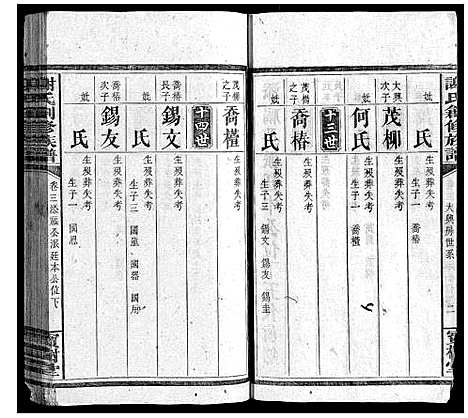 謝氏創修族譜
大興房世系
二
大興次子
茂柳
生殁葬失考
妣
何氏
生殁葬失考
生子一
喬椿
十三世
茂柳之子
喬椿
生殁葬失考
妣
氏
生殁葬失考
生子三
錫文
錫友
錫圭
十四世
喬椿
長子
錫文
生殁葬失考
妣
氏
生殁葬失考
生子三
國器
喬椿次子
錫友
生殁葬失考
妣
氏
生殁葬失考
生子一
國恩
謝氏創修族譜
卷三
公派廷本公位下
寶樹堂